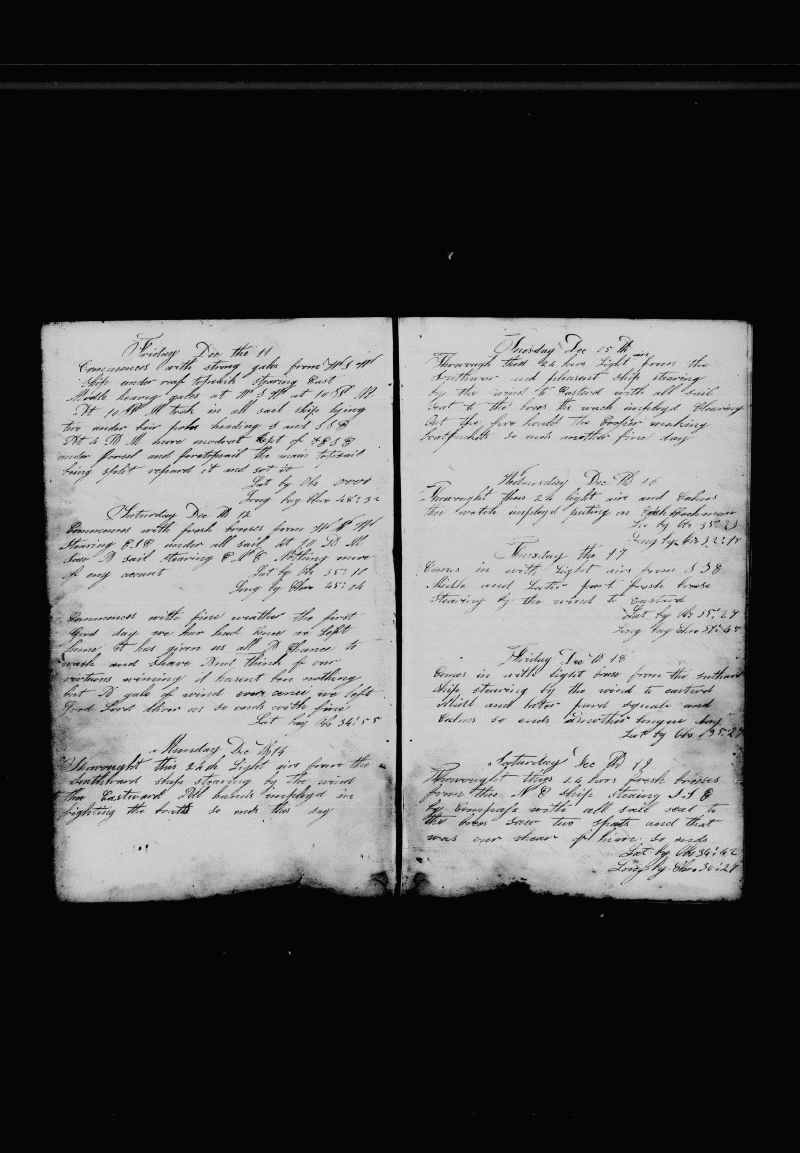 Friday Dec the 11
Commences with strong gales from W S W
Ship under reef topsails Stearing East
Middle heavey gales at W S W at 10 P M
At 10 P M took in all sail ship lying
two under bair poles heading S and S S E
At 4 P M more moderat Kept of E S E
under foresel and foretopsail the main topsail
being split repaerd it and set it
Lat by Obs 0000
Long by Chro 48:32
Saturday Dec th 12
Commences with fresh breeses from W N W
Stearing E S E under all sail At 10 P M
Saw A sail stearing E N E Nothing more
of my acount Lat by Obs 35:11
Long by Chro 45:14
Commences with fine weather the first
Good day we hav had since we Left
hume it has given us all A Chance to
wash and shave And think of our
it hasent ben nothing
but A gale of wind ever cence we left
Good Lord diliver us so ends with fine
Lat by Obs 34:55
Munday Dec th 14
Throwought this 24 h Light airs from the
Southward ship stearing by the wind
thoe Eastward All hands imployd in
the boats so ends this day
Tuesday Dec 15 th
Thorowgh these 24 hors Light air from the
Southward and pleasent ship stearing
by the wind to Eastard with all sail
seat to the the wach imployd Clearing
Out the fore hould the Cooper making
so ends another fine day
Wednesday Dec th 16
Throwought thies 24 light airs and Calms
the watch imployd puting on
Lat by Obs 35:21
Long by Chr 32:18
Thursday the 17
Comes in with Light airs from S S E
Midle and Later part fresh brese
Stearing by the wind to Eastard
Lat by Obs 35:27
Long by Chro 31:45
Friday Dec th 18
Comes in with light brese from the suthard
Ship stearing by the wind to eastard
Midll and later pard squale and
Calms so ends Another day
Lat by Obs 35:27
Saturday Dec th 19
Thorowought thies 24 hors fresh breeses
from the N E Ship stearing S S E
by Compass with all sail seat to
the saw two spouts and that
was our shear of hime so ends
Lat by Obs 34:42
Long by Chro 30:27